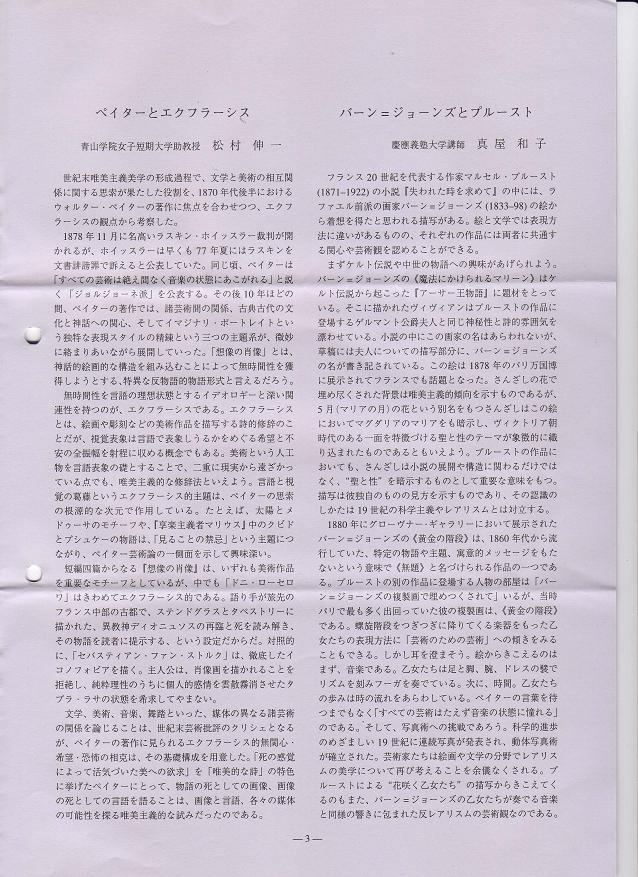 ペイターとエクフラーシス
青山学院女子短期大学助教授　松村　伸一
世紀末唯美主義美学の形成過程で、文学と美術の相互関
係に関する思索が果たした役割を、1870 年代後半における
ウォルター・ペイターの著作に焦点を合わせつつ、エクフ
ラーシスの観点から考察した。
1878 年 11 月に名高いラスキン・ホイッスラー裁判が開
かれるが、ホイッスラーは早くも 77 年夏にはラスキンを
文書誹謗罪で訴えると公表していた。同じ頃、ペイターは
「すべての芸術は絶え間なく音楽の状態にあこがれる」と説
く「ジョルジョーネ派」を公表する。その後 10 年ほどの
間、ペイターの著作では、諸芸術間の関係、古典古代の文
化と神話への関心、そしてイマジナリ・ポートレイトとい
う独特な表現スタイルの精錬という三つの主題系が、微妙
に絡まりあいながら展開していった。「想像の肖像」とは、
神話的絵画的な構造を組み込むことによって無時間性を獲
得しようとする、特異な反物語的物語形式と言えるだろう。
無時間性を言語の理想状態とするイデオロギーと深い関
連性を持つのが、エクフラーシスである。エクフラーシス
とは、絵画や彫刻などの美術作品を描写する詩的修辞のこ
とだが、視覚表象は言語で表象しうるかをめぐる希望と不
安の全振幅を射程に収める概念でもある。美術という人工
物を言語表象の礎とすることで、二重に現実から遠ざかっ
ている点でも、唯美主義的な修辞法といえよう。言語と視
覚の葛藤というエクフラーシス的主題は、ペイターの思索
の根源的な次元で作用している。たとえば、太陽とメ
ドゥーサのモチーフや、『享楽主義者マリウス』中のクピド
とプシュケーの物語は、「見ることの禁忌」という主題につ
ながり、ペイター芸術論の一側面を示して興味深い。
短編四篇からなる『想像の肖像』は、いずれも美術作品
を重要なモチーフとしているが、中でも「ドニ・ローセロ
ワ」はきわめてエクフラーシス的である。語り手が旅先の
フランス中部の古都で、ステンドグラスとタペストリーに
描かれた、異教神ディオニュソスの再臨と死を読み解き、
その物語を読者に提示する、という設定だからだ。対照的
に、「セバスティアン・ファン・ストルク」は、徹底したイ
コノフォビアを描く。主人公は、肖像画を描かれることを
拒絶し、純粋理性のうちに個人的感情を雲散霧消させたタ
ブラ・ラサの状態を希求してやまない。
文学、美術、音楽、舞踏といった、媒体の異なる諸芸術
の関係を論じることは、世紀末芸術批評のクリシェとなる
が、ペイターの著作に見られるエクフラーシス的無関心・
希望・恐怖の相克は、その基礎構成を用意した。「死の感覚
によって活気づいた美への欲求」を「唯美的な詩」の特色
に挙げたペイターにとって、物語の死としての画像、画像
の死としての言語を語ることは、画像と言語、各々の媒体
の可能性を探る唯美主義的な試みだったのである。
バーン＝ジョーンズとプルースト
慶應義塾大学講師　真屋　和子
フランス 20 世紀を代表する作家マルセル・プルースト
(1871–1922) の小説『失われた時を求めて』の中には、ラ
ファエル前派の画家バーン＝ジョーンズ (1833–98) の絵か
ら着想を得たと思われる描写がある。絵と文学では表現方
法に違いがあるものの、それぞれの作品には両者に共通す
る関心や芸術観を認めることができる。
まずケルト伝説や中世の物語への興味があげられよう。
バーン＝ジョーンズの《魔法にかけられるマリーン》はケ
ルト伝説から起こった『アーサー王物語』に題材をとって
いる。そこに描かれたヴィヴィアンはプルーストの作品に
登場するゲルマント公爵夫人と同じ神秘性と詩的雰囲気を
漂わせている。小説の中にこの画家の名はあらわれないが、
草稿には夫人についての描写部分に、バーン＝ジョーンズ
の名が書き記されている。この絵は 1878 年のパリ万国博
に展示されてフランスでも話題となった。さんざしの花で
埋め尽くされた背景は唯美主義的傾向を示すものであるが、
5 月 (マリアの月) の花という別名をもつさんざしはこの絵
においてマグダリアのマリアをも暗示し、ヴィクトリア朝
時代のある一面を特徴づける聖と性のテーマが象徴的に織
り込まれたものであるともいえよう。プルーストの作品に
おいても、さんざしは小説の展開や構造に関わるだけでは
なく、“聖と性” を暗示するものとして重要な意味をもつ。
描写は彼独自のものの見方を示すものであり、その認識の
しかたは 19 世紀の科学主義やレアリスムとは対立する。
1880 年にグローヴナー・ギャラリーにおいて展示された
バーン＝ジョーンズの《黄金の階段》は、1860 年代から流
行していた、特定の物語や主題、寓意的メッセージをもた
ないという意味で《無題》と名づけられる作品の一つであ
る。プルーストの別の作品に登場する人物の部屋は「バー
ン＝ジョーンズの複製画で埋めつくされて」いるが、当時
パリで最も多く出回っていた彼の複製画は、《黄金の階段》
である。螺旋階段をつぎつぎに降りてくる楽器をもった乙
女たちの表現方法に「芸術のための芸術」への傾きをみる
こともできる。しかし耳を澄まそう。絵からきこえるのは
まず、音楽である。乙女たちは足と脚、腕、ドレスの襞で
リズムを刻みフーガを奏でている。次に、時間。乙女たち
の歩みは時の流れをあらわしている。ペイターの言葉を待
つまでもなく「すべての芸術はたえず音楽の状態に憧れる」
のである。そして、写真術への挑戦であろう。科学的進歩
のめざましい 19 世紀に連続写真が発表され、動体写真術
が確立された。芸術家たちは絵画や文学の分野でレアリス
ムの美学について再び考えることを余儀なくされる。プ
ルーストによる “花咲く乙女たち” の描写からきこえてく
るのもまた、バーン＝ジョーンズの乙女たちが奏でる音楽
と同様の響きに包まれた反レアリスムの芸術観なのである。
— 3 —